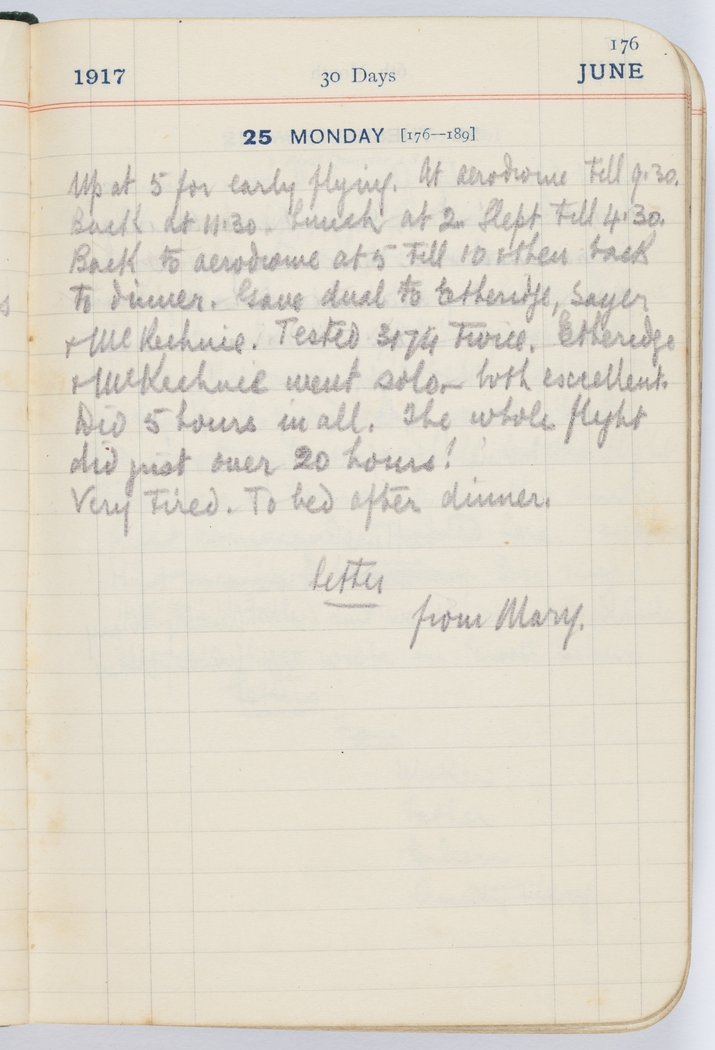 176
1917 30 Days JUNE
25 MONDAY [176—189]
Up at 5 for early flying. At aerodrome till 9.30.
Back at 11.30. Lunch at 2. Slept till 4.30.
Back to aerodrome at 5 till 10 & then back
to dinner. Gave dual to Etheridge, Sayer
& McKechnie. Tested 3174 twice. Etheridge
& McKechnie went solo – both excellent.
Did 5 hours in all. The whole flight
did just over 20 hours!
Very tired. To bed after dinner.
Letter
from Mary.